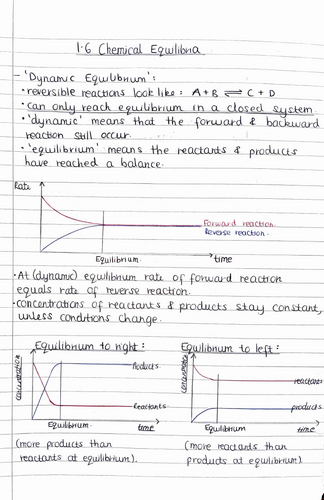 1.6 Chemical Equilibria
- 'Dynamic Equilibrium':
• reversible reactions look like: A + B ⇌ C + D
• can only reach equilibrium in a closed system.
• 'dynamic' means that the forward & backward
reaction still occur.
• 'equilibrium' means the reactants & products
have reached a balance.
Rate
Forward reaction.
Reverse reaction.
Equilibrium
time
• At (dynamic) equilibrium rate of forward reaction
equals rate of reverse reaction.
• concentrations of reactants & products stay constant,
unless conditions change.
Equilibrium to right:
concentration
Products
Reactants
Equilibrium
time
(more products than
reactants at equilibrium).
Equilibrium to left:
concentration
reactants
products
Equilibrium
time
(more reactants than
products at equilibrium)